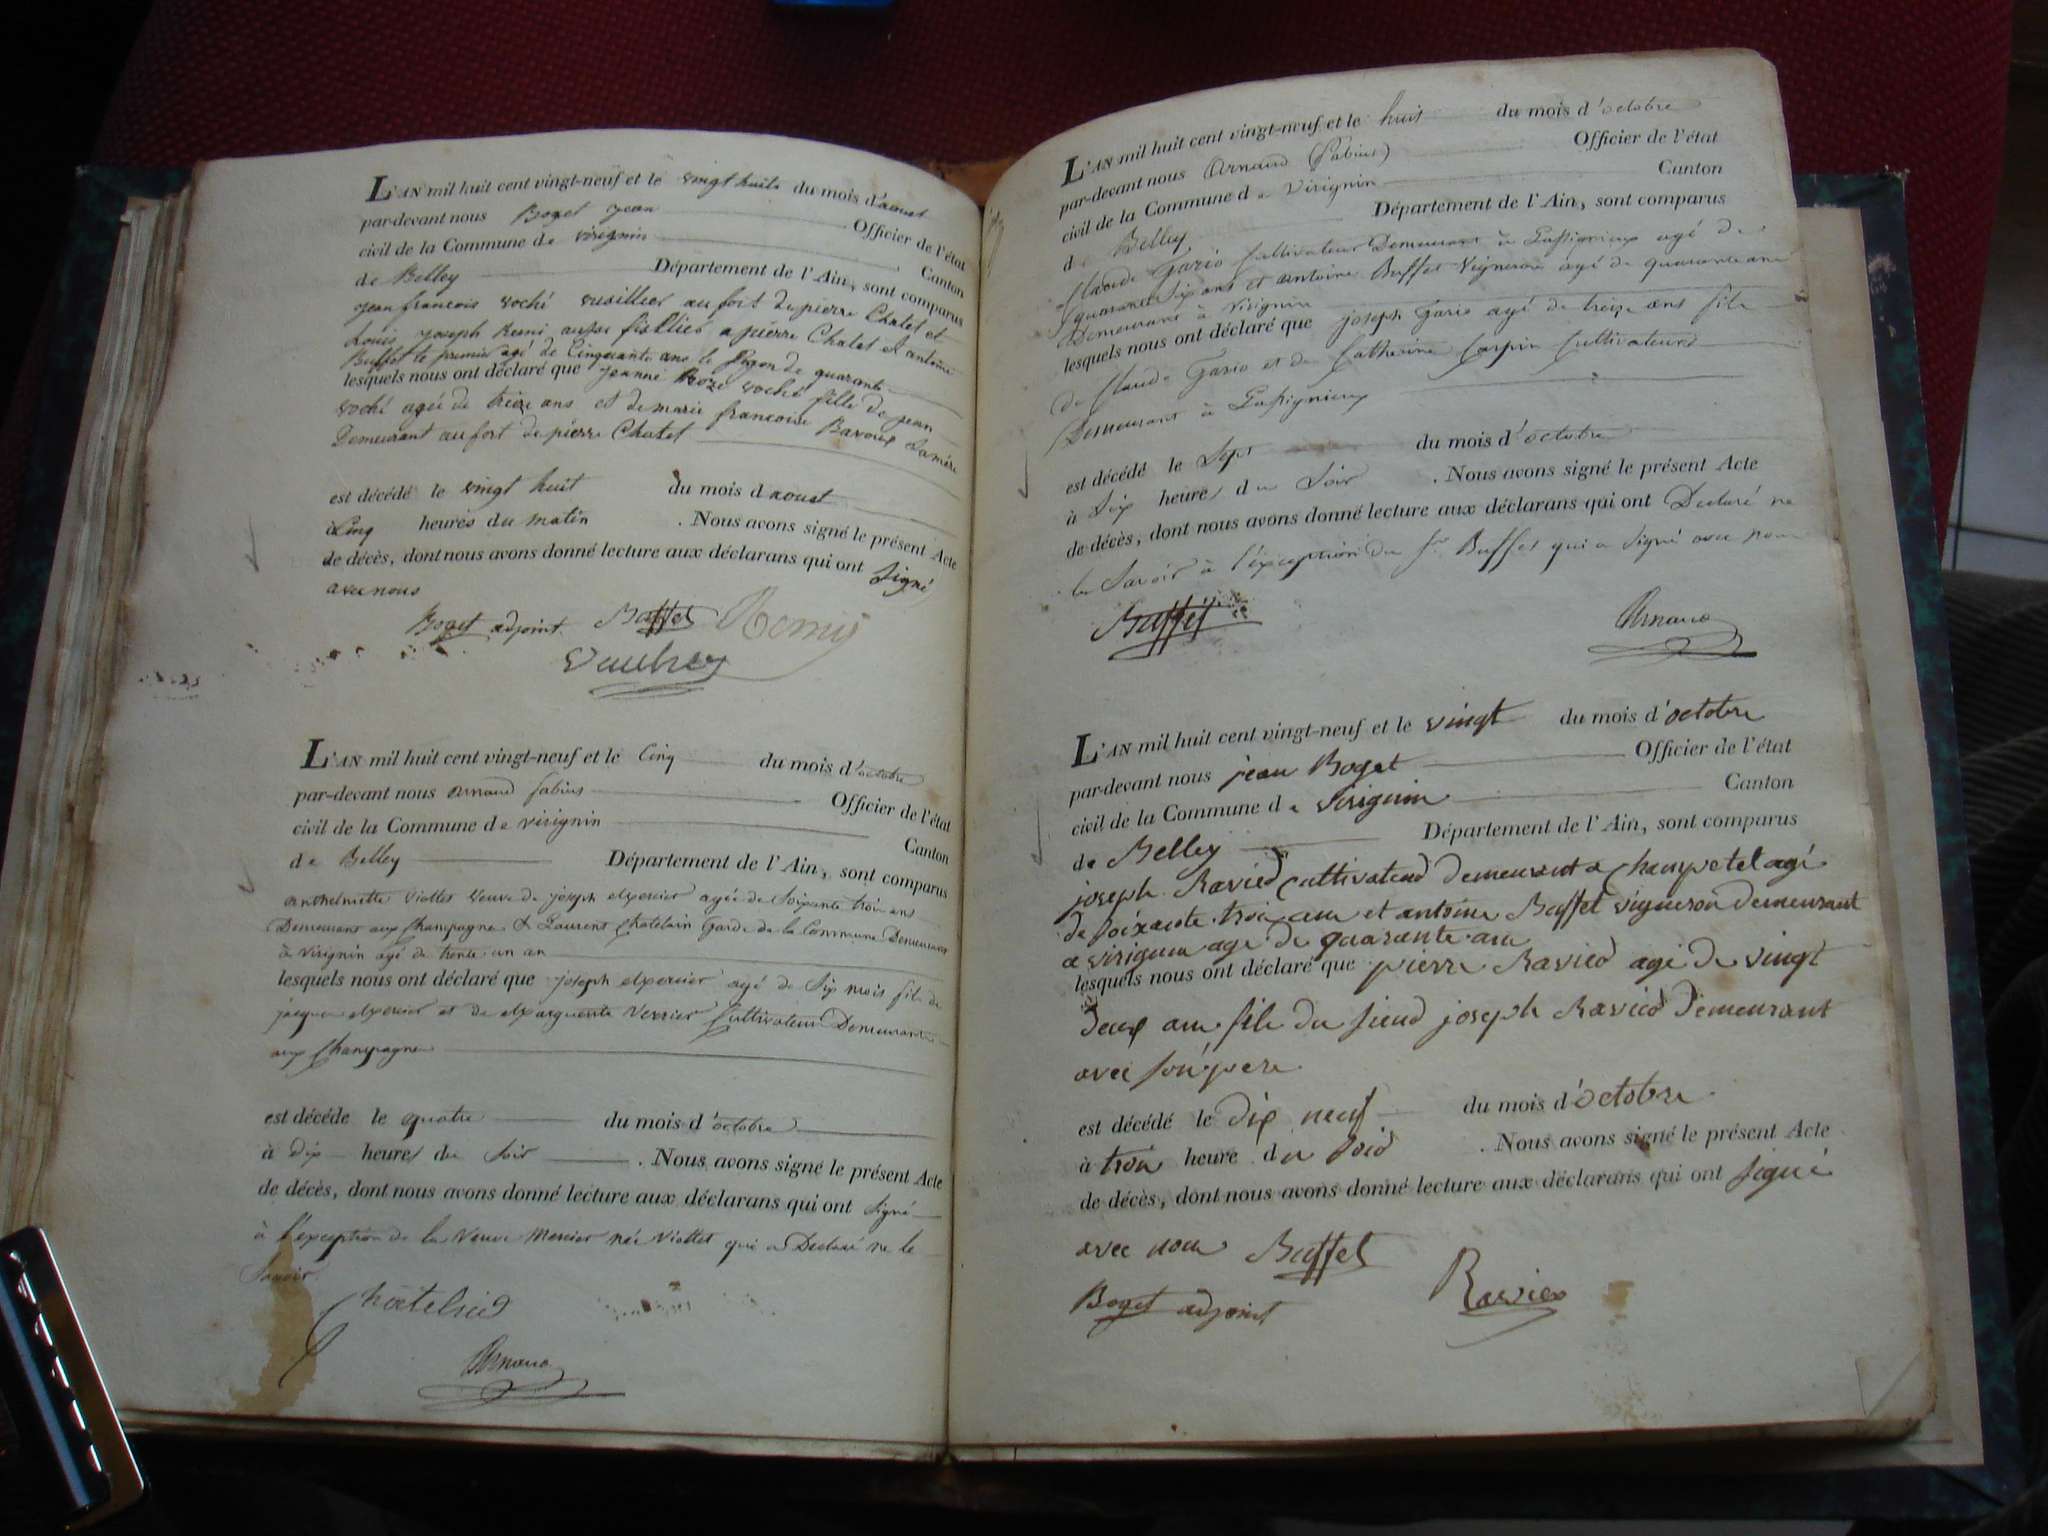 L'AN mil huit cent vingt-neuf et le vingt huit du mois d'aoust
par-devant nous Boget jean Officier de l'état
civil de la Commune de virignin Canton
de Belley Département de l'Ain, sont comparus
jean francois au fort de pierre Chatel et
Louis joseph a pierre Chatel et antoine
Buffet le premier agé de Cinquante ans le segond de quarante
lesquels nous ont déclaré que jeanne Roze voché fille de jean
voché agée de treize ans et de marie francoise Bavoux sa mère
Demeurant au fort de pierre Chatel
est décédé le vingt huit du mois d aoust
à Cinq heures du matin . Nous avons signé le présent Acte
de décès, dont nous avons donné lecture aux déclarans qui ont Signé
avec nous
Boget adjoint Buffet Remy
L'AN mil huit cent vingt-neuf et le Cinq du mois d'octobre
par-devant nous Arnaud fabius Officier de l'état
civil de la Commune de virignin Canton
de Belley Département de l'Ain, sont comparus
anthelmette Viollet Veuve de joseph agée de Soixante trois ans
Demeurant aux Champagnes & Laurent Chatelain Garde de la Commune Demeurant
à Virignin agé de trente un an
lesquels nous ont déclaré que joseph agé de Six mois fils de
jacques et de Verrier Cultivateurs Demeurant
aux Champagnes
est décédé le quatre du mois d'octobre
à dix heures du Soir . Nous avons signé le présent Acte
de décès, dont nous avons donné lecture aux déclarans qui ont Signé
à l'exception de la Veuve Mercier née Viollet qui a Déclaré ne le
Savoir
Arnaud
L'AN mil huit cent vingt-neuf et le huit du mois d'octobre
par-devant nous Arnaud (fabius) Officier de l'état
civil de la Commune de Virignin Canton
de Belley Département de l'Ain, sont comparus
Claude Gario Cultivateur Demeurant à agé de
quarante Six ans et antoine Buffet Vigneron agé de quarante ans
Demeurant à Virignin
lesquels nous ont déclaré que joseph Gario agé de treize ans fils
de Claude Gario et de Catherine Carpin Cultivateurs
Demeurant à
est décédé le Sept du mois d'octobre
à Six heures du Soir . Nous avons signé le présent Acte
de décès, dont nous avons donné lecture aux déclarans qui ont Declaré ne
le Savoir à l'exception du Sr Buffet qui a Signé avec nous
Buffet Arnaud
L'AN mil huit cent vingt-neuf et le vingt du mois d'octobre
par-devant nous jean Boget Officier de l'état
civil de la Commune de virignin Canton
de Belley Département de l'Ain, sont comparus
joseph Ravier Cultivateur demeurant a Champetel agé
de soixante trois ans et antoine Buffet vigneron demeurant
a virignin agé de quarante ans
lesquels nous ont déclaré que pierre Ravier agé de vingt
deux ans fils du sieur joseph Ravier demeurant
avec son père
est décédé le dix neuf du mois d'octobre
à trois heure du soir . Nous avons signé le présent Acte
de décès, dont nous avons donné lecture aux déclarans qui ont signé
avec nous Buffet
Boget adjoint Ravier